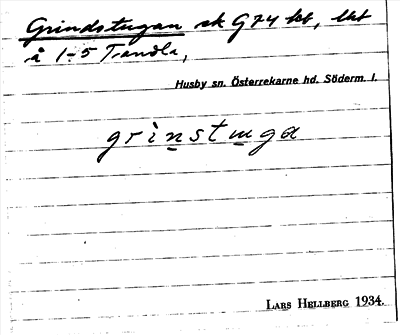 Grindstugan sk G74 kt, lht
å 1-5 Tandla,
Husby sn. Österrekarne hd. Söderm. l.
grìnstuga
LARS HELLBERG 1934.